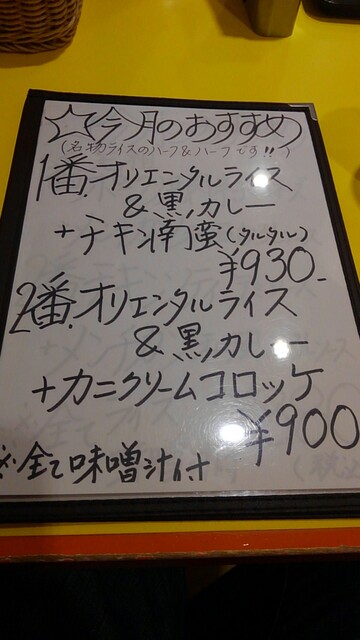 ☆今月のおすすめ
(名物ライスのハーフ&ハーフです!!)
1番.オリエンタルライス
&黒カレー
+チキン南蛮(タルタル)
¥930-
2番.オリエンタルライス
&黒カレー
+カニクリームコロッケ
¥900
※全て味噌汁付